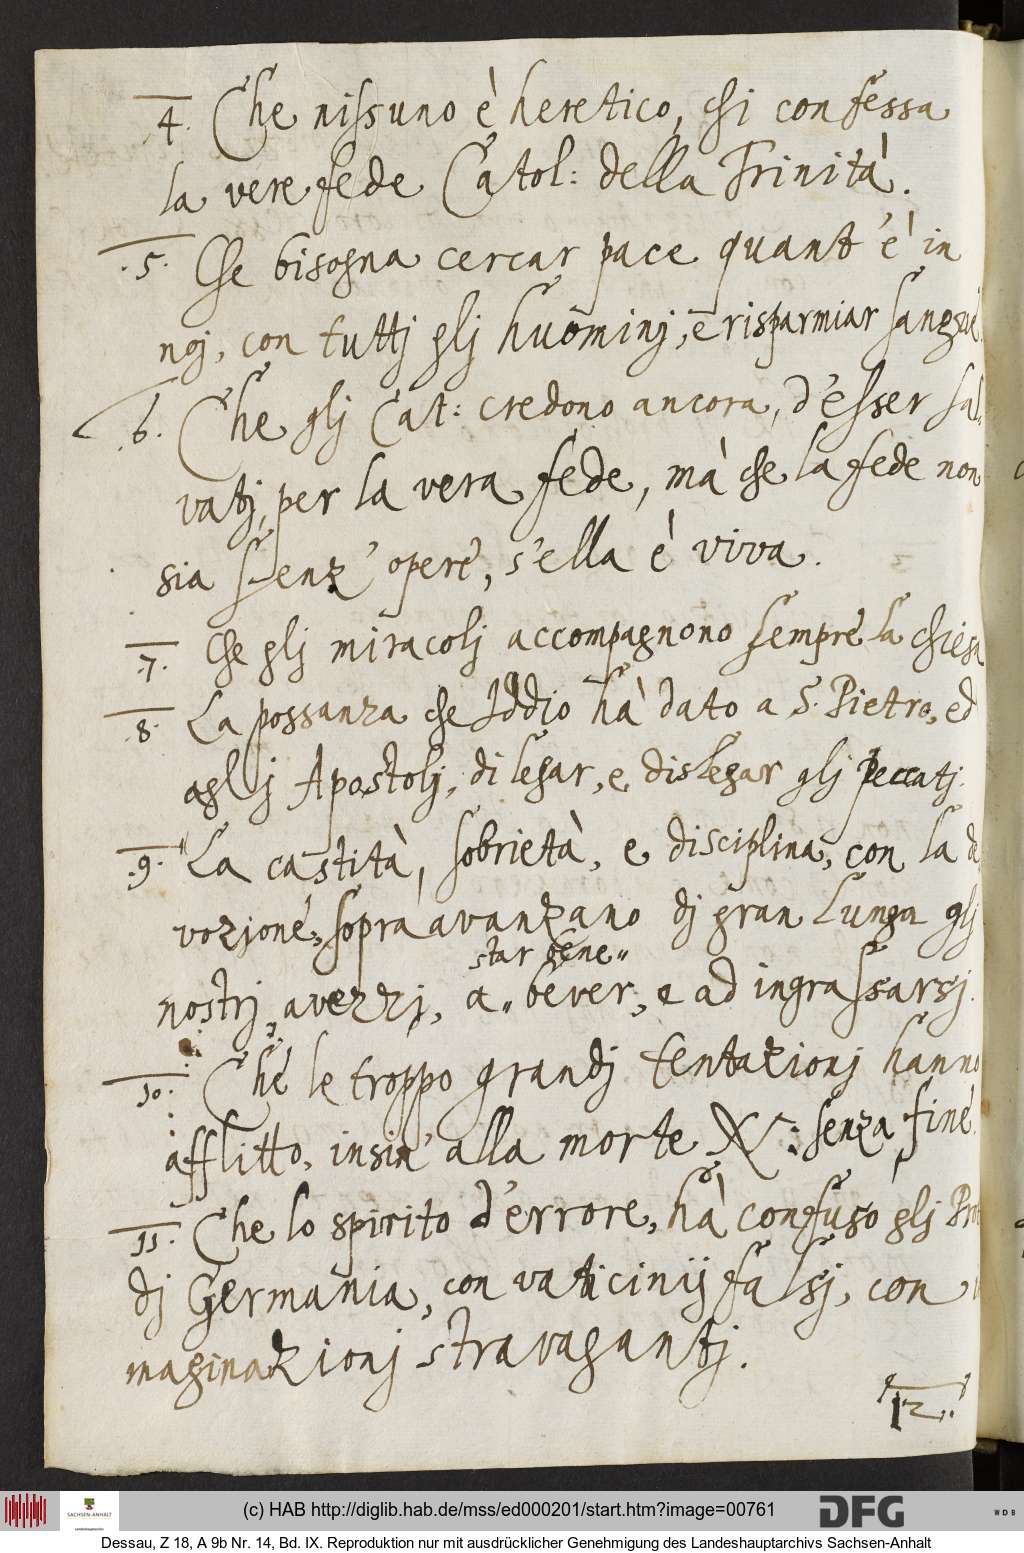 4. Che nissuno è heretico, chi confessa
la vere fede Catol: della Trinità.
.5. Che bisogna cercar pace quant'è in
noj, con tuttj glj huominj, e risparmiar sangue.
.6. Che glj Cat: credono ancora, d'esser sal:
vatj, per la vera fede, mà che la fede non
sia senz' opere, s'ella è viva.
.7. Che glj miracolj accompagnono sempre la chiesa
.8. La possanza che Iddio hà dato a S. Pietro, ed
aglj Apostolj, di legar, e dislegar glj peccatj.
.9. La castità, sobrietà, e disciplina, con la de
vozione, sopra avanzano dj gran lunga glj
star bene"
nostrj avezzj, a" bever, e ad ingrassarsj.
.10. Che le troppo grandj tentazionj hanno
afflitto, insin' alla morte X: senza fine.
.11. Che lo spirito d'errore, hà confuso glj Prot
dj Germania, con vaticinij falsj, con
maginazionj stravagantj.
12.
(c) HAB http://diglib.hab.de/mss/ed000201/start.htm?image=00761
SACHSEN-ANHALT
DFG
WDB
Dessau, Z 18, A 9b Nr. 14, Bd. IX. Reproduktion nur mit ausdrücklicher Genehmigung des Landeshauptarchivs Sachsen-Anhalt